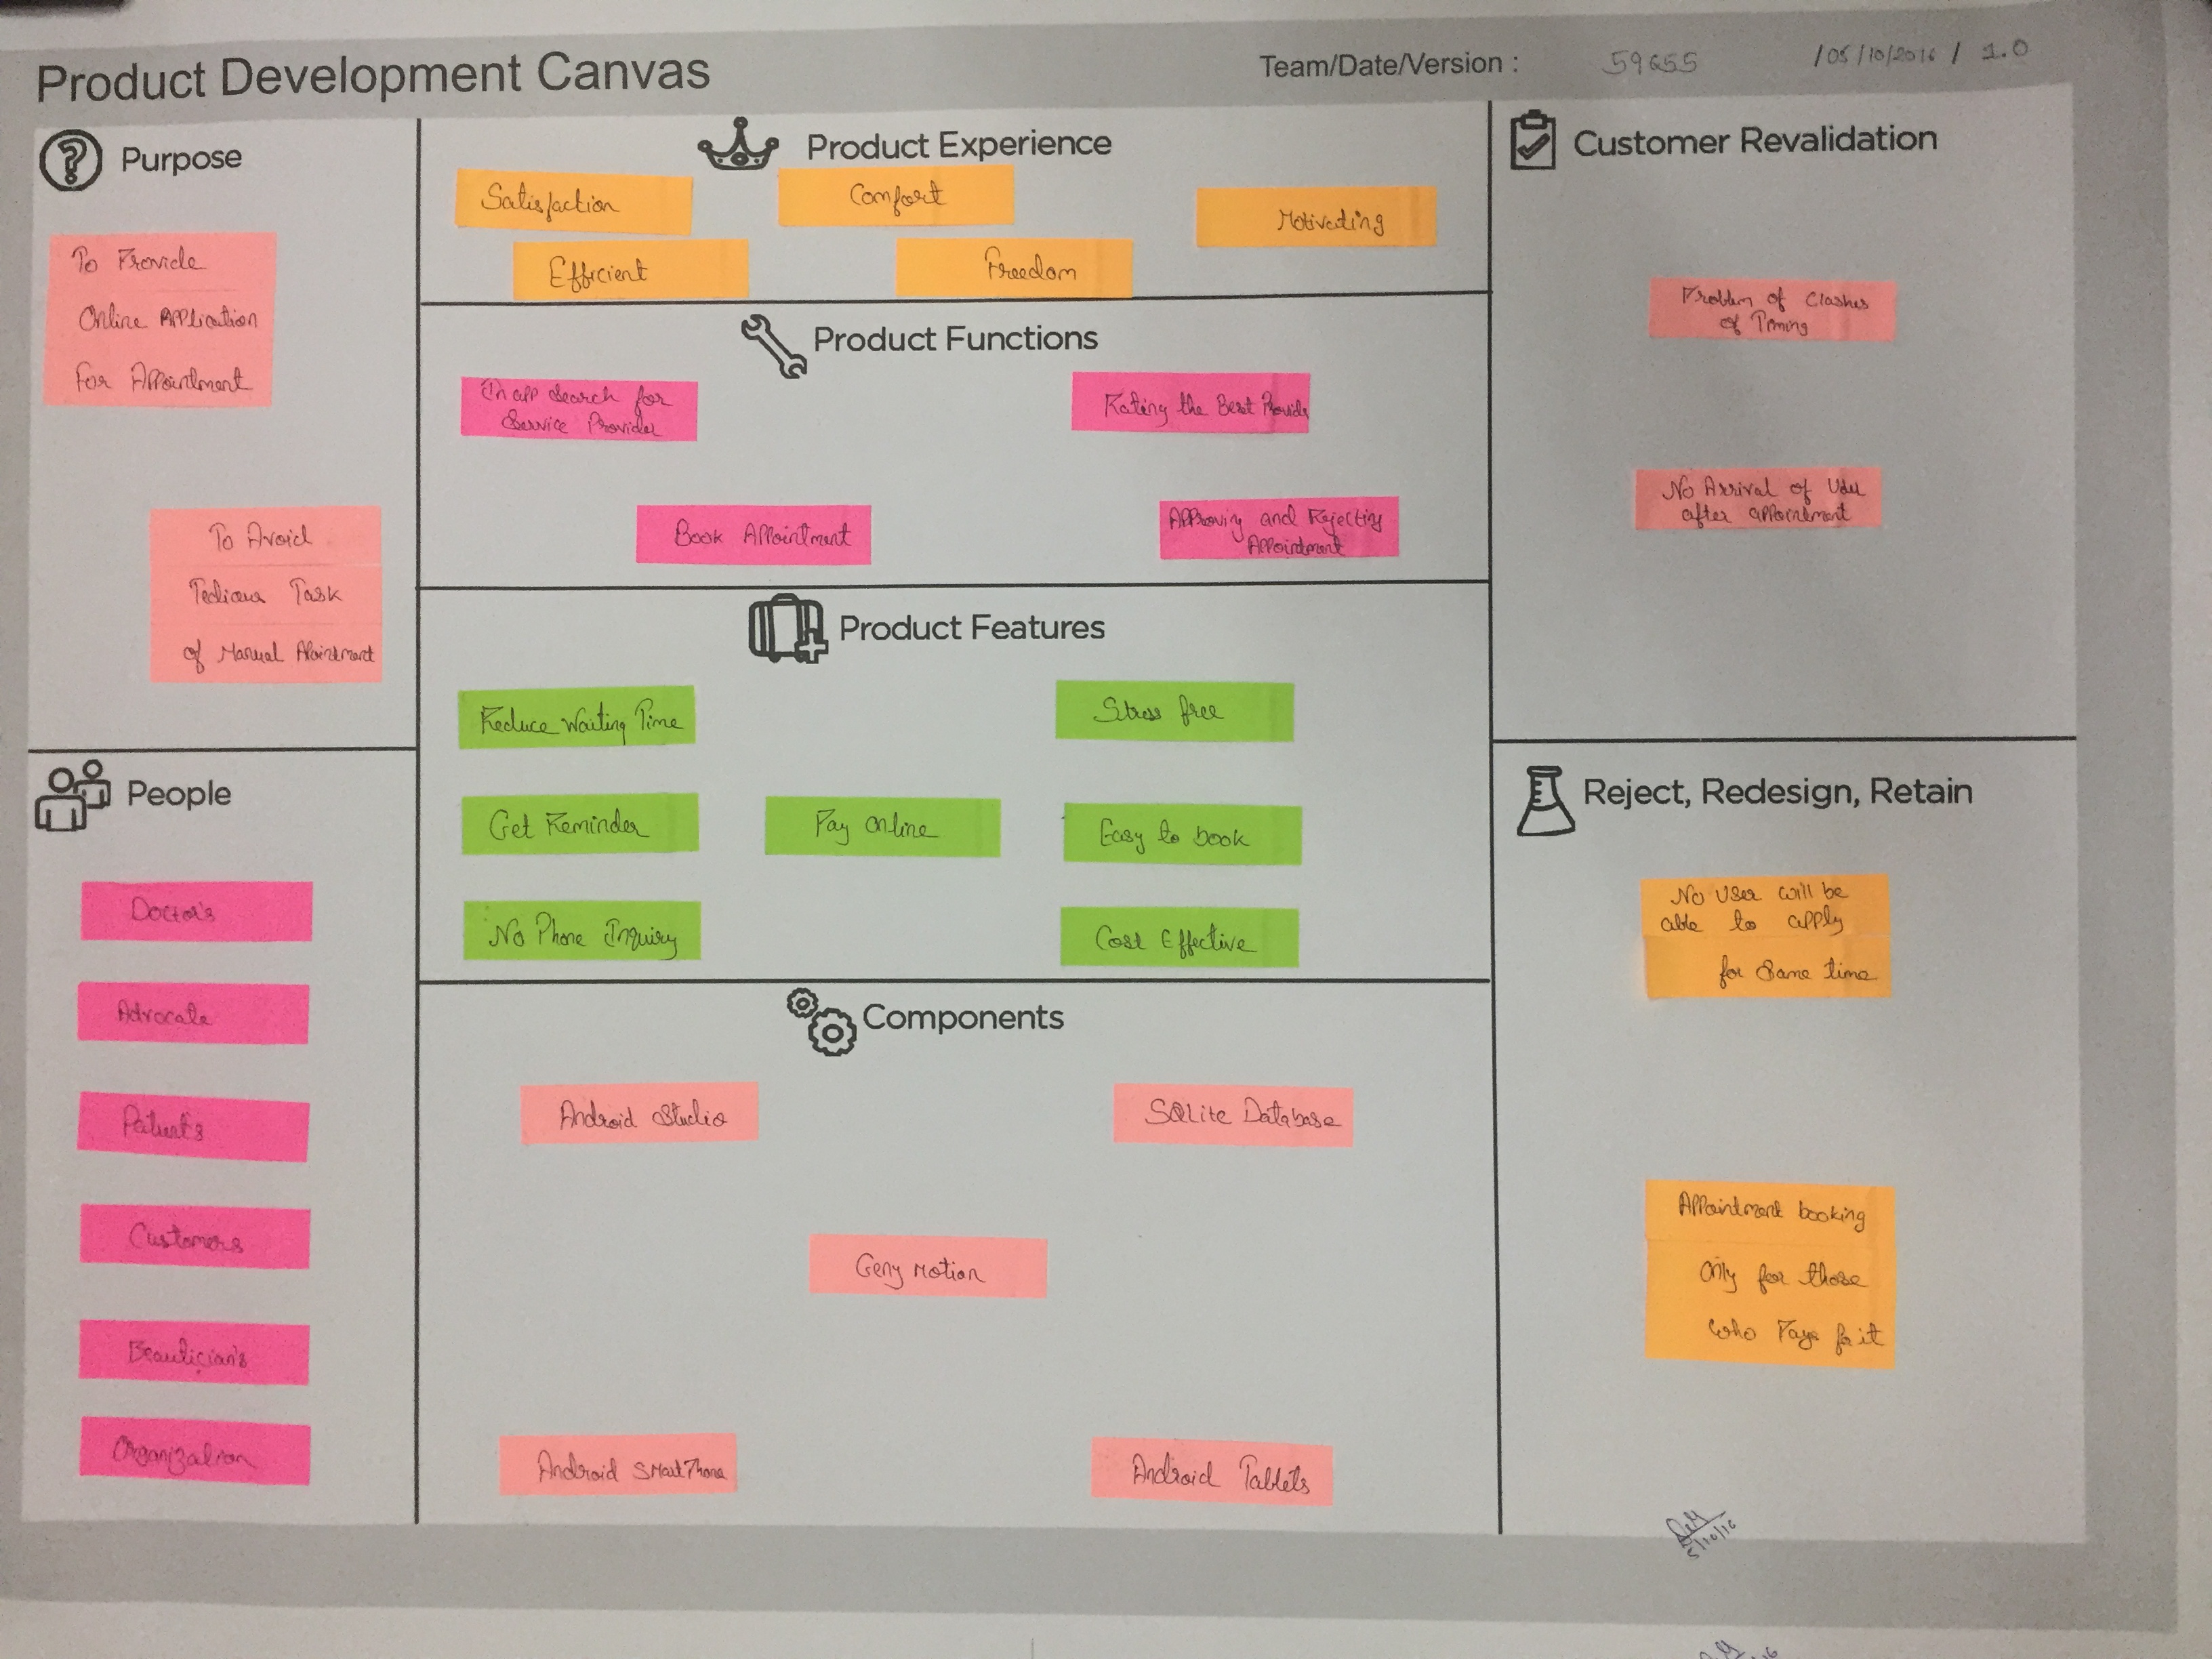 Product Development Canvas
Team/Date/Version : 59655 /05/10/2016 / 1.0
Purpose
To Provide
Online Application
For Appointment
To Avoid
Tedious Task
of Manual Apointment
People
Doctor's
Advocate
Patient's
Customers
Beautician's
Organization
Product Experience
Satisfaction
Comfort
Motivating
Efficient
Freedom
Product Functions
In app search for
Service Provider
Rating the Best Provider
Book Appointment
Approving and Rejecting
Appointment
Product Features
Reduce Waiting Time
Stress free
Get Reminder
Pay Online
Easy to book
No Phone Inquiry
Cost Effective
Components
Android Studio
SQLite Database
Geny Motion
Android SmartPhone
Android Tablets
Customer Revalidation
Problem of Clashes
of Timing
No Arrival of User
after appointment
Reject, Redesign, Retain
No User will be
able to apply
for Same time
Appointment booking
Only for those
who Pays for it
5/10/16